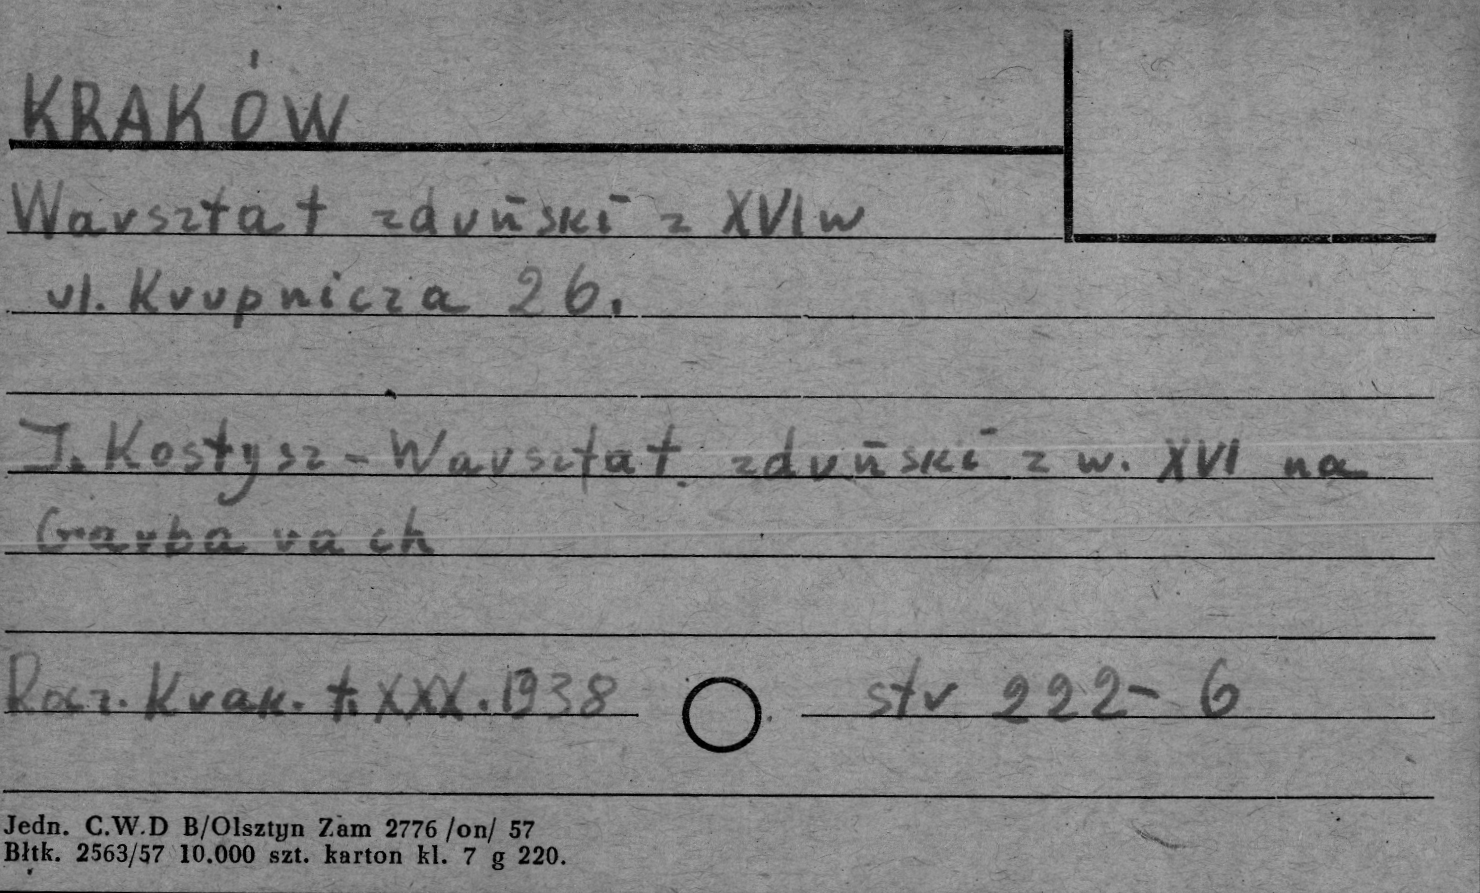 KRAKÓW
Warsztat zduński z XVI w
ul. Krupnicza 26.
J. Kostysz - Warsztat zduński z w. XVI na
Garbarach
Rocz. Krak. t. XXX. 1938 str 222-6
Jedn. C.W.D B/Olsztyn Zam 2776 /on/ 57
Błtk. 2563/57 10.000 szt. karton kl. 7 g 220.